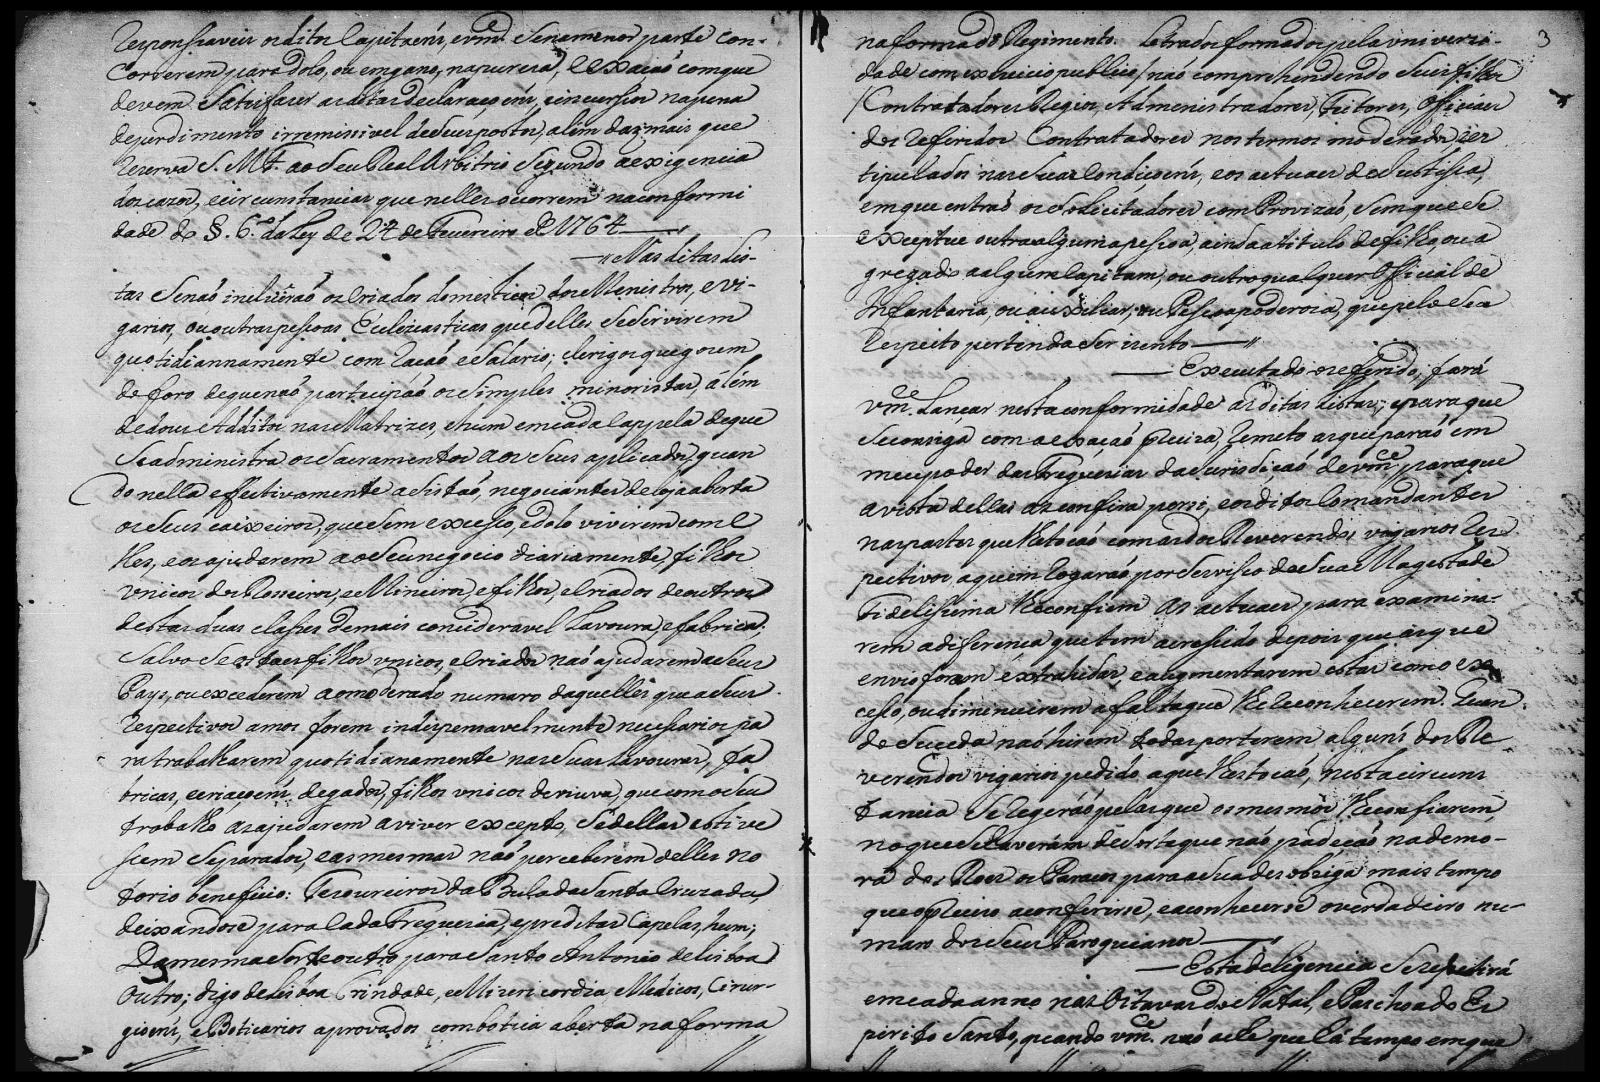 responsaveis os ditos Capitaens, e vm.ce se na menor parte con-
correrem para o dolo, ou emgano, na pureza, e exação com que
devem satisfazer as ditas declaraçoens, e incursos na pena
de perdimento irremissivel de seus postos, além das mais que
reserva S. Mg.e ao seu Real Arbitrio segundo a exigencia
dos cazos, e circunstancias que nelles ocorrem na conformi
dade do §. 6.º da Ley de 24 de Fevereiro de 1764 ——
— Nas ditas Lis-
tas se não incluirão os Criados domesticos dos Menistros, e vi-
garios, ou outras pessoas Eccleziasticas que delles se servirem
quotidiannamente com ração e salario; clerigos que gozem
de foro de que não participão os simples minoristas, além
de dous Addito nas Matrizes, e hum em cada cappela de que
se administra os sacramentos aos seus aplicados, quan
do nella effectivamente asistão, negociantes de loja aberta
os seus caixeiros, que sem excesso, e dolo viverem com el
les, e os ajudarem ao seu negocio diariamente, filhos
unicos dos Rosseiros, e Mineiros, e filhos, e criados de outros
destas duas classes de mais consideravel Lavoura, e fabrica;
salvo se estes filhos unicos, e criados não ajudarem a seus
Pays, ou excederem ao moderado numaro daquelles que a seus
respectivos amos forem indispensavelmente necessarios pa
ra trabalharem quotidianamente nas suas lavouras, fa
bricas, e criaçoens de gados, filhos unicos de viuva, que com o seu
trabalho as ajudarem a viver excepto se dellas estive
scem separados, e as mesmas não perceberem delles no
torio beneficio: Tesoureiros da Bula da Santa Cruzada,
deixandose para cada Freguezia, e preditas Capelas, hum;
Da mesma sorte outro para Santo Antonio de Lisboa
outro; digo de Lisboa Trindade, e Mizericordia, Médicos, Cirur-
gioens, e Boticarios aprovados com botica aberta na forma
3
na forma do Regimento. Letrados formados pela universi-
dade com exercicio publico / não comprehendendo seus filhos
/ Contratadores Regios, Administradores, Feitores, Officiaes
dos referidos Contratadores nos termos moderados, es
tipulados nas suas Condiçoens, e os actuaes da Justissa,
em que entrão os solicitadores com Provizão, sem que se
exceptue outra alguma pessoa, ainda a titulo de filho, ou a
gregado a algum Capitam, ou outro qualquer Official de
Infantaria, ou auxiliar, ou Pessoa poderoza, que pelo seu
respeito pertenda ser izento ——
—— Executado o referido, fará
vm.ce Lançar nesta conformidade as ditas listas; e para que
se consiga com a exação precisa, remeto as que parão em
meu poder das Freguezias da Jurisdição de vm.ce, para que
a vista dellas as confira por si, e os ditos Comandantes
nas partes que lhe tocão com as dos Reverendos vigarios res
pectivos a quem rogarão por servisso de sua Magestade
Fidelissima lhe confiem as actuaes para examina-
rem a diferença que tem acrescido depois que as que
envio foram extrahidas e augmentarem estas como ex
cesso, ou diminuirem a falta que lhe reconhecerem. Quan
do suceda não hirem todas por terem alguns dos Re
verendos vigarios pedido a que lhes tocão, nesta circuns
tancia se regerão pelas que os mesmos lhe confiarem,
no que se haverám de sorte que não padeção na demo-
ra dos Roes os Parocos para a sua desobriga mais tempo
que o preciso a conferirse, e a conhecerse o verdadeiro nu-
maro dos seus Paroquianos ——
—— Esta deligencia se repetirá
em cada anno nas Oitavas do Natal, e Paschoa do Es
pirito Santo, quando vm.ce não ache que há tempo em que